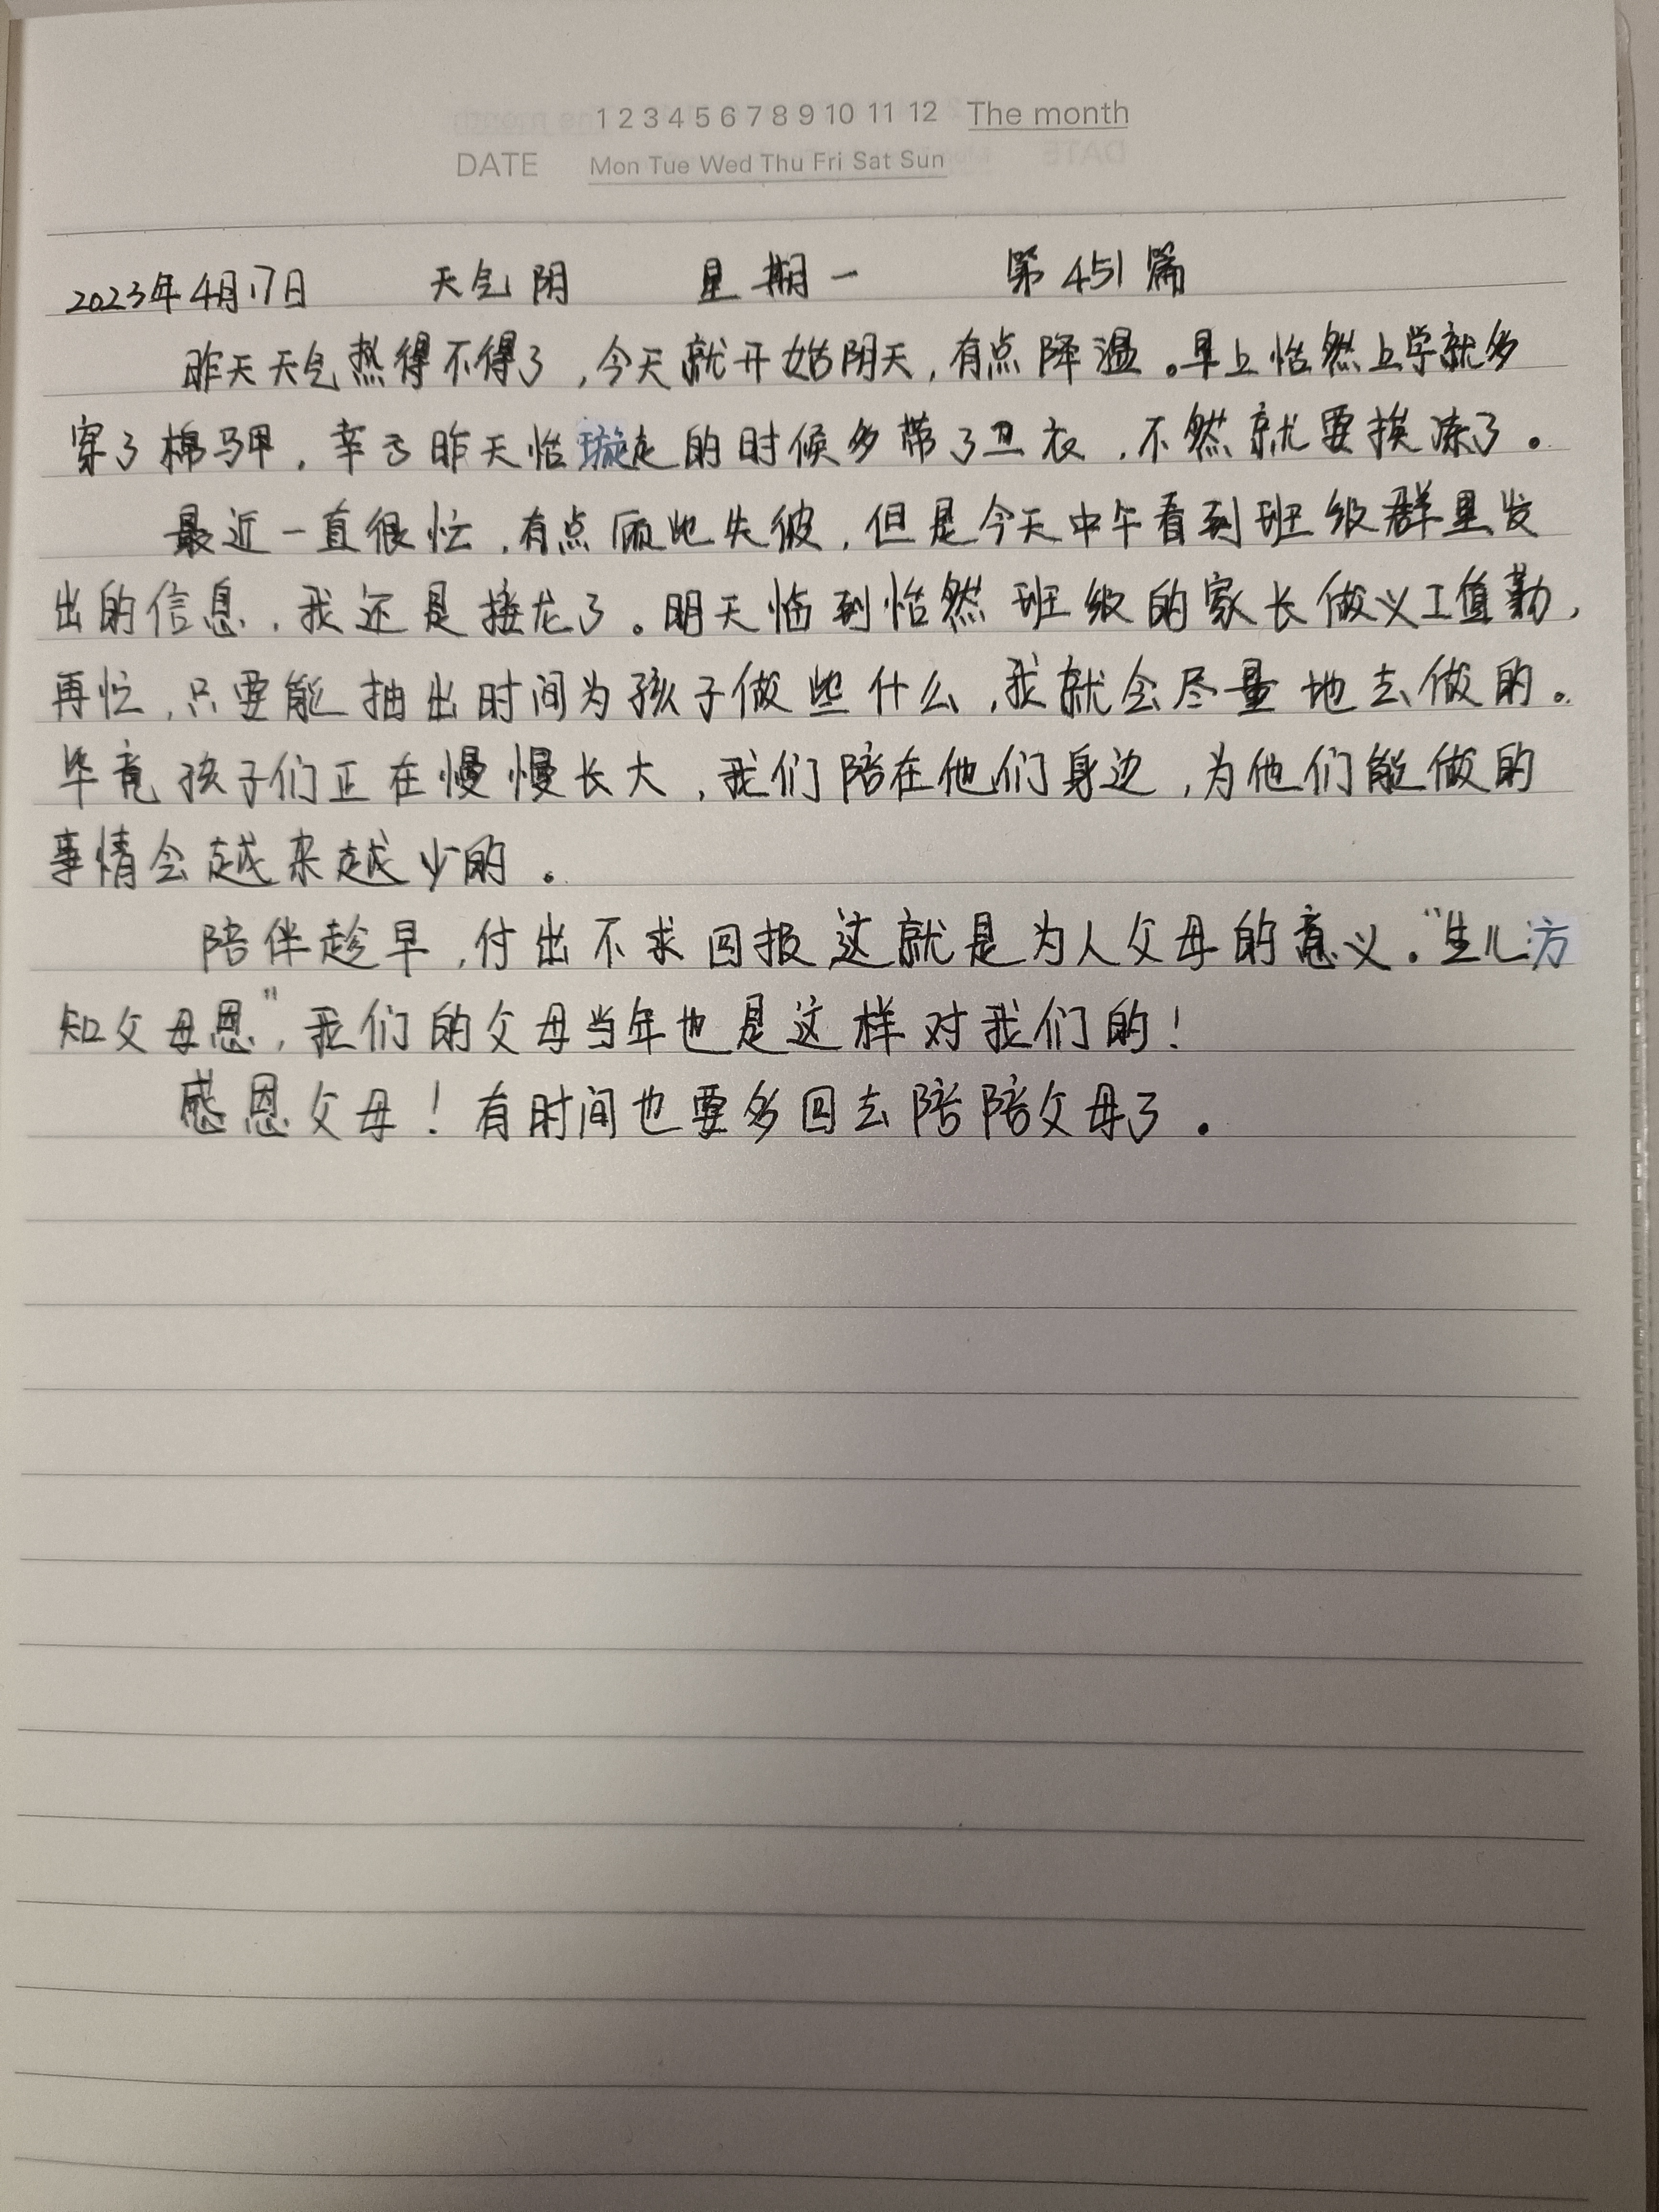 1 2 3 4 5 6 7 8 9 10 11 12 The month
DATE Mon Tue Wed Thu Fri Sat Sun
2023年4月17日 天气阴 星期一 第451篇
昨天天气热得不得了，今天就开始阴天，有点降温。早上怡然上学就多
穿了棉马甲，幸亏昨天怡璇走的时候多带了卫衣，不然就要挨冻了。
最近一直很忙，有点顾此失彼，但是今天中午看到班级群里发
出的信息，我还是接龙了。明天临到怡然班级的家长做义工值勤，
再忙，只要能抽出时间为孩子做些什么，我就会尽量地去做的。
毕竟孩子们正在慢慢长大，我们陪在他们身边，为他们能做的
事情会越来越少的。
陪伴趁早，付出不求回报，这就是为人父母的意义。“生儿方
知父母恩”，我们的父母当年也是这样对我们的！
感恩父母！有时间也要多回去陪陪父母了。